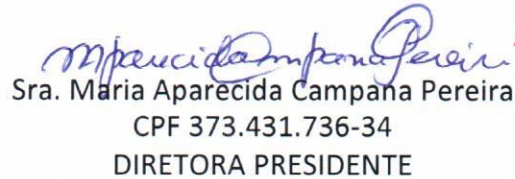 MparecidaCampanaPereira
Sra. Maria Aparecida Campana Pereira
CPF 373.431.736-34
DIRETORA PRESIDENTE